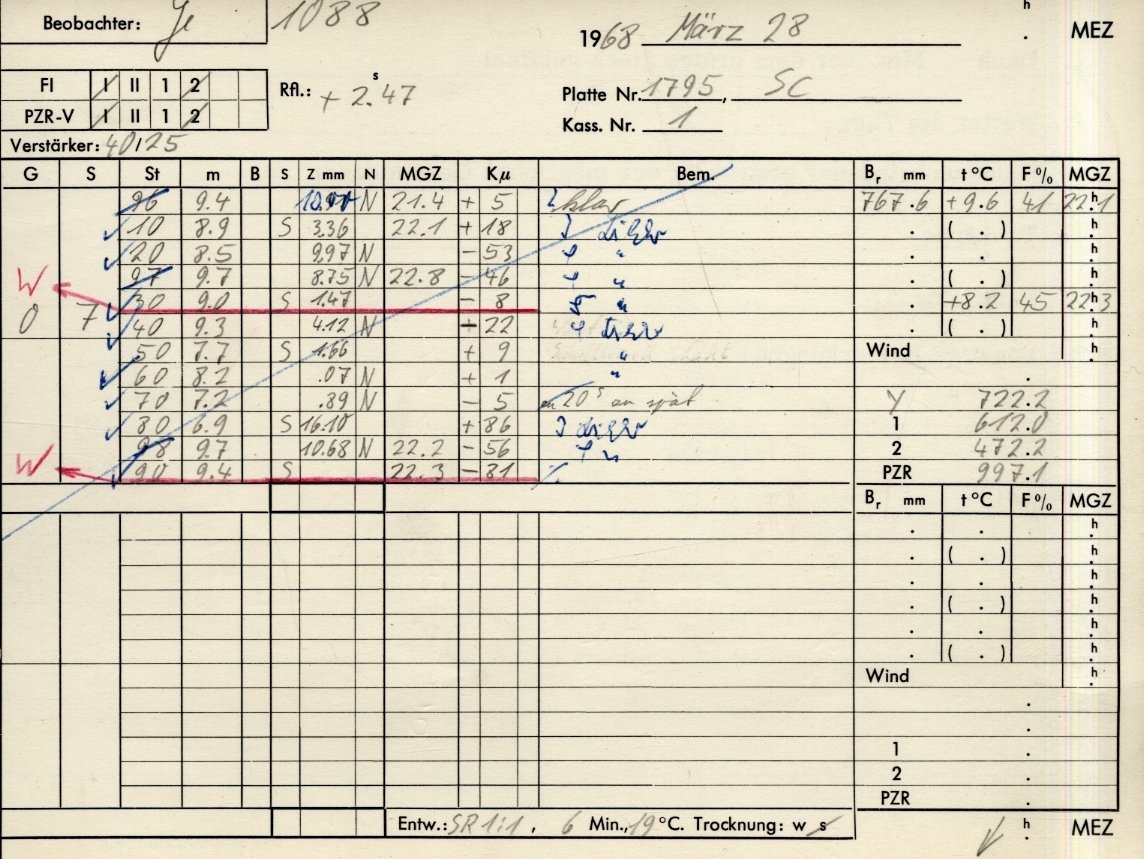 Beobachter: Je 1088
1968 März 28
h . MEZ
FI I II 1 2
PZR-V I II 1 2
Rfl.: + 2.47 s
Platte Nr. 1795, SC
Kass. Nr. 1
Verstärker: 40/25
G S St m B S Z mm N MGZ Kμ Bem. Br mm t °C F % MGZ
96 9.4 N 21.4 + 5 klar 767.6 +9.6 41 22.1 h
10 8.9 S 3.36 22.1 + 18 . ( . ) h
20 8.5 9.97 N - 53 " . . h
97 9.7 8.75 N 22.8 - 46 " . ( . ) h
W 30 9.0 S 1.47 - 8 " . +8.2 45 22.3 h
0 7 40 9.3 4.12 N + 22 . ( . ) h
50 7.7 S 1.66 + 9 " Wind h
60 8.2 .07 N + 1 " .
70 7.2 .89 N - 5 20 s zu spät Y 722.2
80 6.9 S 16.10 + 86 1 612.0
98 9.7 10.68 N 22.2 - 56 " 2 472.2
W 90 9.4 S 22.3 - 81 PZR 997.1
Br mm t °C F % MGZ
. . h
. ( . ) h
. . h
. ( . ) h
. . h
. ( . ) h
Wind h
.
.
1 .
2 .
PZR .
Entw.: SR 1:1, 6 Min., 19 °C. Trocknung: w s
h . MEZ